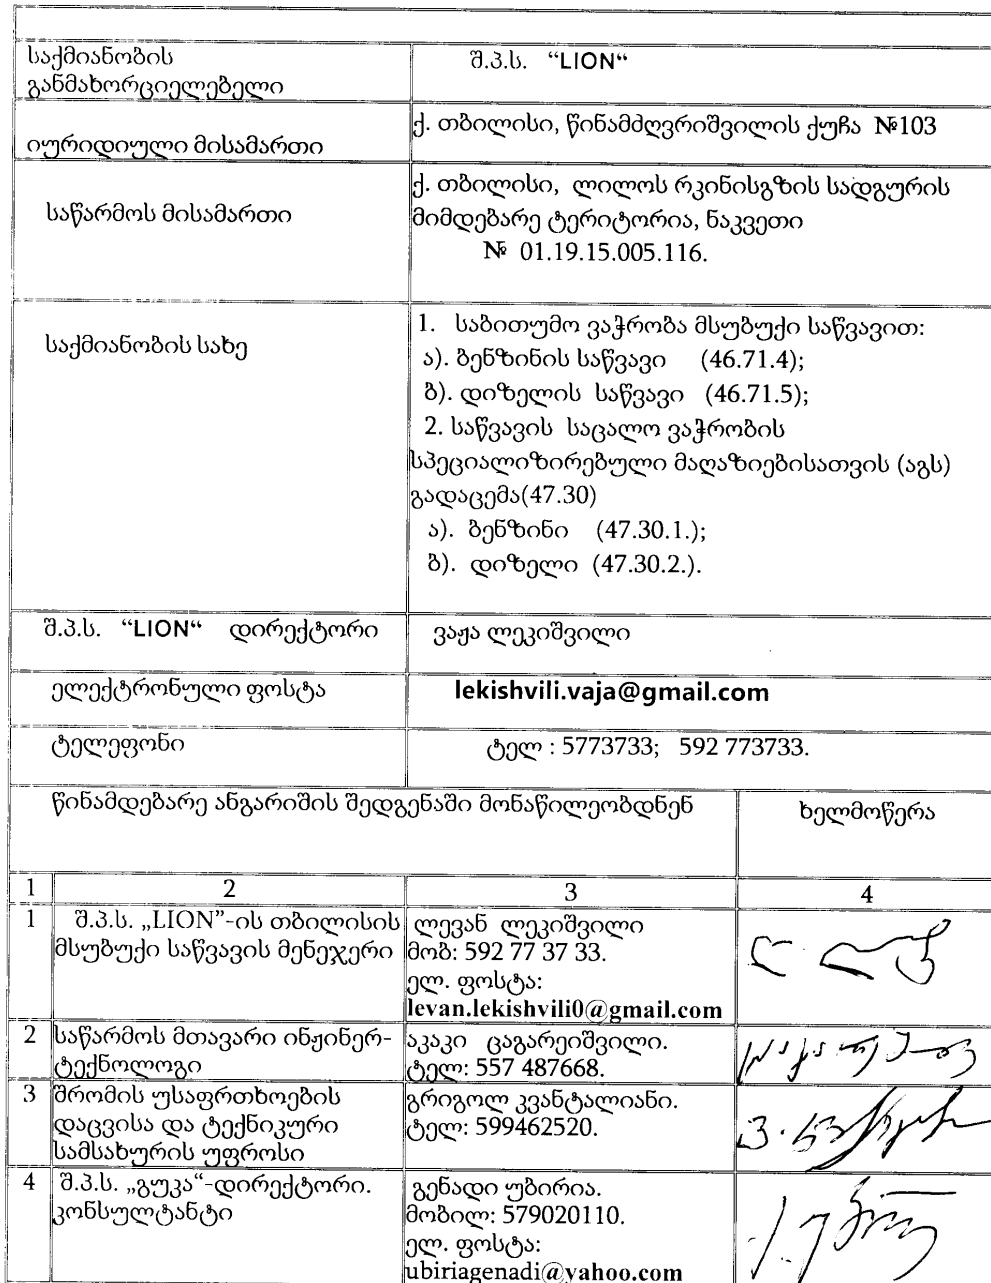 საქმიანობის
განმახორციელებელი
შ.პ.ს. “LION“
იურიდიული მისამართი
ქ. თბილისი, წინამძღვრიშვილის ქუჩა №103
საწარმოს მისამართი
ქ. თბილისი, ლილოს რკინისგზის სადგურის
მიმდებარე ტერიტორია, ნაკვეთი
№ 01.19.15.005.116.
საქმიანობის სახე
1. საბითუმო ვაჭრობა მსუბუქი საწვავით:
ა). ბენზინის საწვავი (46.71.4);
ბ). დიზელის საწვავი (46.71.5);
2. საწვავის საცალო ვაჭრობის
სპეციალიზირებული მაღაზიებისათვის (აგს)
გადაცემა(47.30)
ა). ბენზინი (47.30.1.);
ბ). დიზელი (47.30.2.).
შ.პ.ს. “LION“ დირექტორი
ვაჟა ლეკიშვილი
ელექტრონული ფოსტა
lekishvili.vaja@gmail.com
ტელეფონი
ტელ : 5773733; 592 773733.
წინამდებარე ანგარიშის შედგენაში მონაწილეობდნენ
ხელმოწერა
1 2 3 4
1 შ.პ.ს. „LION”-ის თბილისის
მსუბუქი საწვავის მენეჯერი
ლევან ლეკიშვილი
მობ: 592 77 37 33.
ელ. ფოსტა:
levan.lekishvili0@gmail.com
2 საწარმოს მთავარი ინჟინერ-
ტექნოლოგი
აკაკი ცაგარეიშვილი.
ტელ: 557 487668.
3 შრომის უსაფრთხოების
დაცვისა და ტექნიკური
სამსახურის უფროსი
გრიგოლ კვანტალიანი.
ტელ: 599462520.
4 შ.პ.ს. „გუკა“-დირექტორი.
კონსულტანტი
გენადი უბირია.
მობილ: 579020110.
ელ. ფოსტა:
ubiriagenadi@yahoo.com